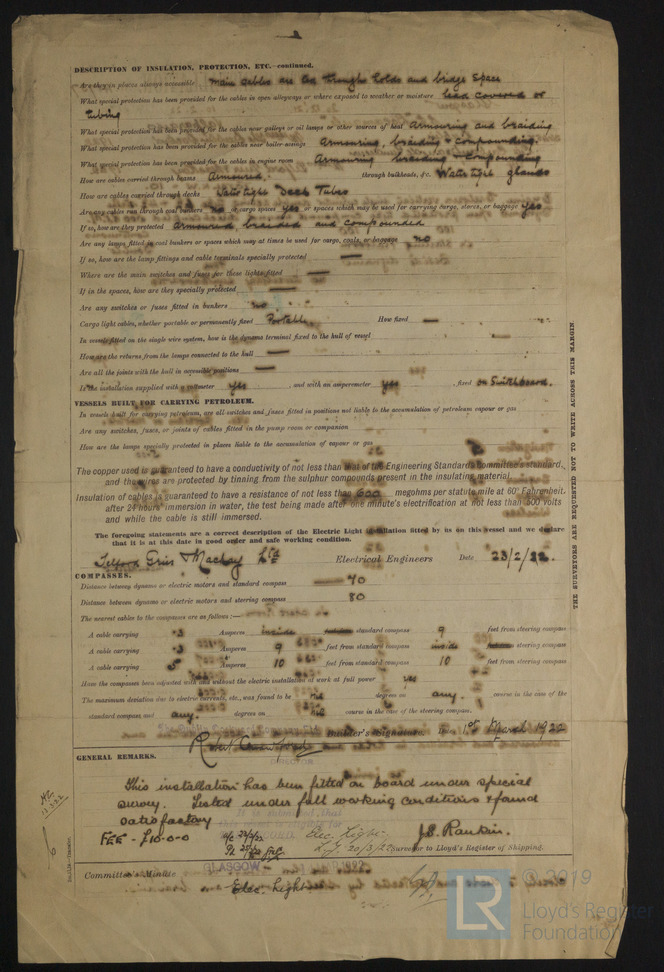 DESCRIPTION OF INSULATION, PROTECTION, ETC.—continued.
Are they in places always accessible main cables are led through holds and bridge space
What special protection has been provided for the cables in open alleyways or where exposed to weather or moisture lead covered or
tubing
What special protection has been provided for the cables near galleys or oil lamps or other sources of heat Armouring and braiding
What special protection has been provided for the cables near boiler casings Armouring, braiding & compounding.
What special protection has been provided for the cables in engine room Armouring braiding & compounding
How are cables carried through beams Armoured. through bulkheads, &c. Watertight glands
How are cables carried through decks Watertight Deck Tubes
Are any cables run through coal bunkers no or cargo spaces yes or spaces which may be used for carrying cargo, stores, or baggage yes
If so, how are they protected armoured braided and compounded
Are any lamps fitted in coal bunkers or spaces which may at times be used for cargo, coals, or baggage no
If so, how are the lamp fittings and cable terminals specially protected —
Where are the main switches and fuses for these lights fitted —
If in the spaces, how are they specially protected —
Are any switches or fuses fitted in bunkers no
Cargo light cables, whether portable or permanently fixed Portable How fixed —
In vessels fitted on the single wire system, how is the dynamo terminal fixed to the hull of vessel —
How are the returns from the lamps connected to the hull —
Are all the joints with the hull in accessible positions —
Is the installation supplied with a voltmeter yes, and with an amperemeter yes, fixed on Switchboard.
VESSELS BUILT FOR CARRYING PETROLEUM.
In vessels built for carrying petroleum, are all switches and fuses fitted in positions not liable to the accumulation of petroleum vapour or gas
Are any switches, fuses, or joints of cables fitted in the pump room or companion
How are the lamps specially protected in places liable to the accumulation of vapour or gas
The copper used is guaranteed to have a conductivity of not less than that of the Engineering Standards Committee's standard,
and the wires are protected by tinning from the sulphur compounds present in the insulating material.
Insulation of cables is guaranteed to have a resistance of not less than 600 megohms per statute mile at 60° Fahrenheit
after 24 hours' immersion in water, the test being made after one minute's electrification at not less than 500 volts
and while the cable is still immersed.
The foregoing statements are a correct description of the Electric Light installation fitted by us on this vessel and we declare
that it is at this date in good order and safe working condition.
Telford Grier & Mackay Ltd Electrical Engineers Date 23/2/22.
COMPASSES.
Distance between dynamo or electric motors and standard compass 40
Distance between dynamo or electric motors and steering compass 30
The nearest cables to the compasses are as follows:—
A cable carrying .3 Amperes inside standard compass 9 feet from steering compass
A cable carrying .3 Amperes 9 feet from standard compass inside steering compass
A cable carrying 5 Amperes 10 feet from standard compass 10 feet from steering compass
Have the compasses been adjusted with and without the electric installation at work at full power yes
The maximum deviation due to electric currents, etc., was found to be nil degrees on any course in the case of the
standard compass and any degrees on nil course in the case of the steering compass.
Builder's Signature. Date 1st March 1922
DIRECTOR
GENERAL REMARKS.
This installation has been fitted on board under special
survey. Tested under full working conditions & found
satisfactory
FEE - £10-0-0
Elec. Light
J.S. Rankin.
Surveyor to Lloyd's Register of Shipping.
Committee's Minute GLASGOW
Elec. Light
THE SURVEYORS ARE REQUESTED NOT TO WRITE ACROSS THIS MARGIN
LR © 2019
Lloyd's Register
Foundation